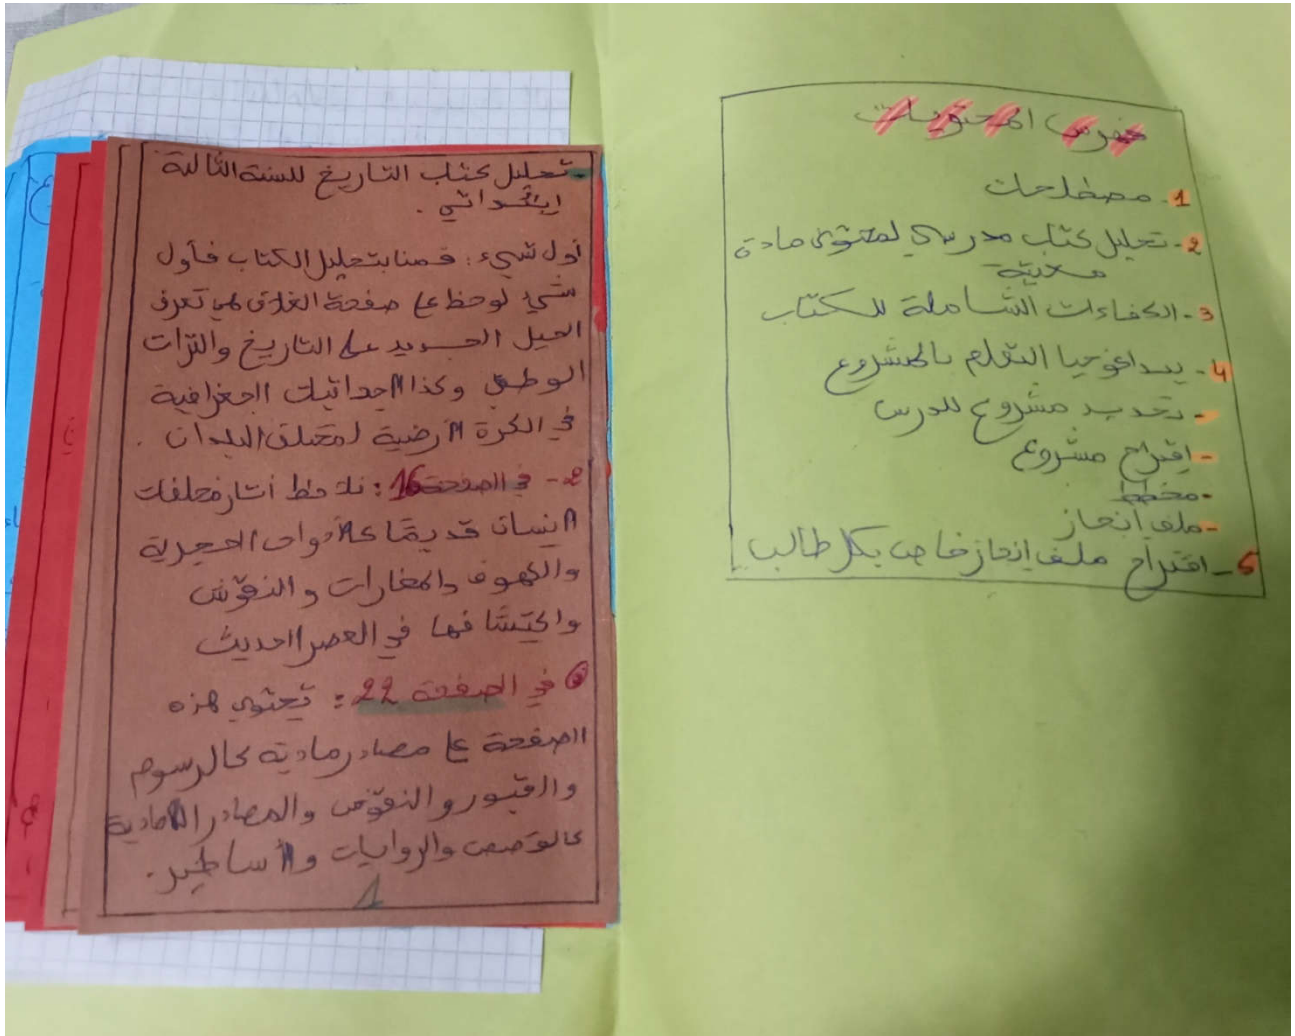 فهرس المحتويات
1- مصطلحات
2- تحليل كتاب مدرسي لمحتوى مادة
معينة
3- الكفاءات الشاملة للكتاب
4- بيداغوجيا التعلم بالمشروع
- تحديد مشروع للدرس
- إقتراح مشروع
- مخطط
- ملف إنجاز
5- اقتراح ملف إنجاز خاص بكل طالب
- تحليل كتاب التاريخ للسنة الثالثة
إبتدائي .
أول شيء : قمنا بتحليل الكتاب فأول
شيء لوحظ على صفحة الغلاف هي تعرف
الجيل الجديد على التاريخ والتراث
الوطني وكذا احداثيات الجغرافية
في الكرة الأرضية لمختلف البلدان .
2- في الصفحة 16 : نلاحظ أثار مخلفات
الانسان قديمًا كالأدوات الحجرية
والكهوف والمغارات والنقوش
واكتشافها في العصر الحديث
في الصفحة 22 : تحتوي هذه
الصفحة على مصادر مادية كالرسوم
والقبور والنقوش والمصادر اللامادية
كالقصص والروايات والأساطير .
1